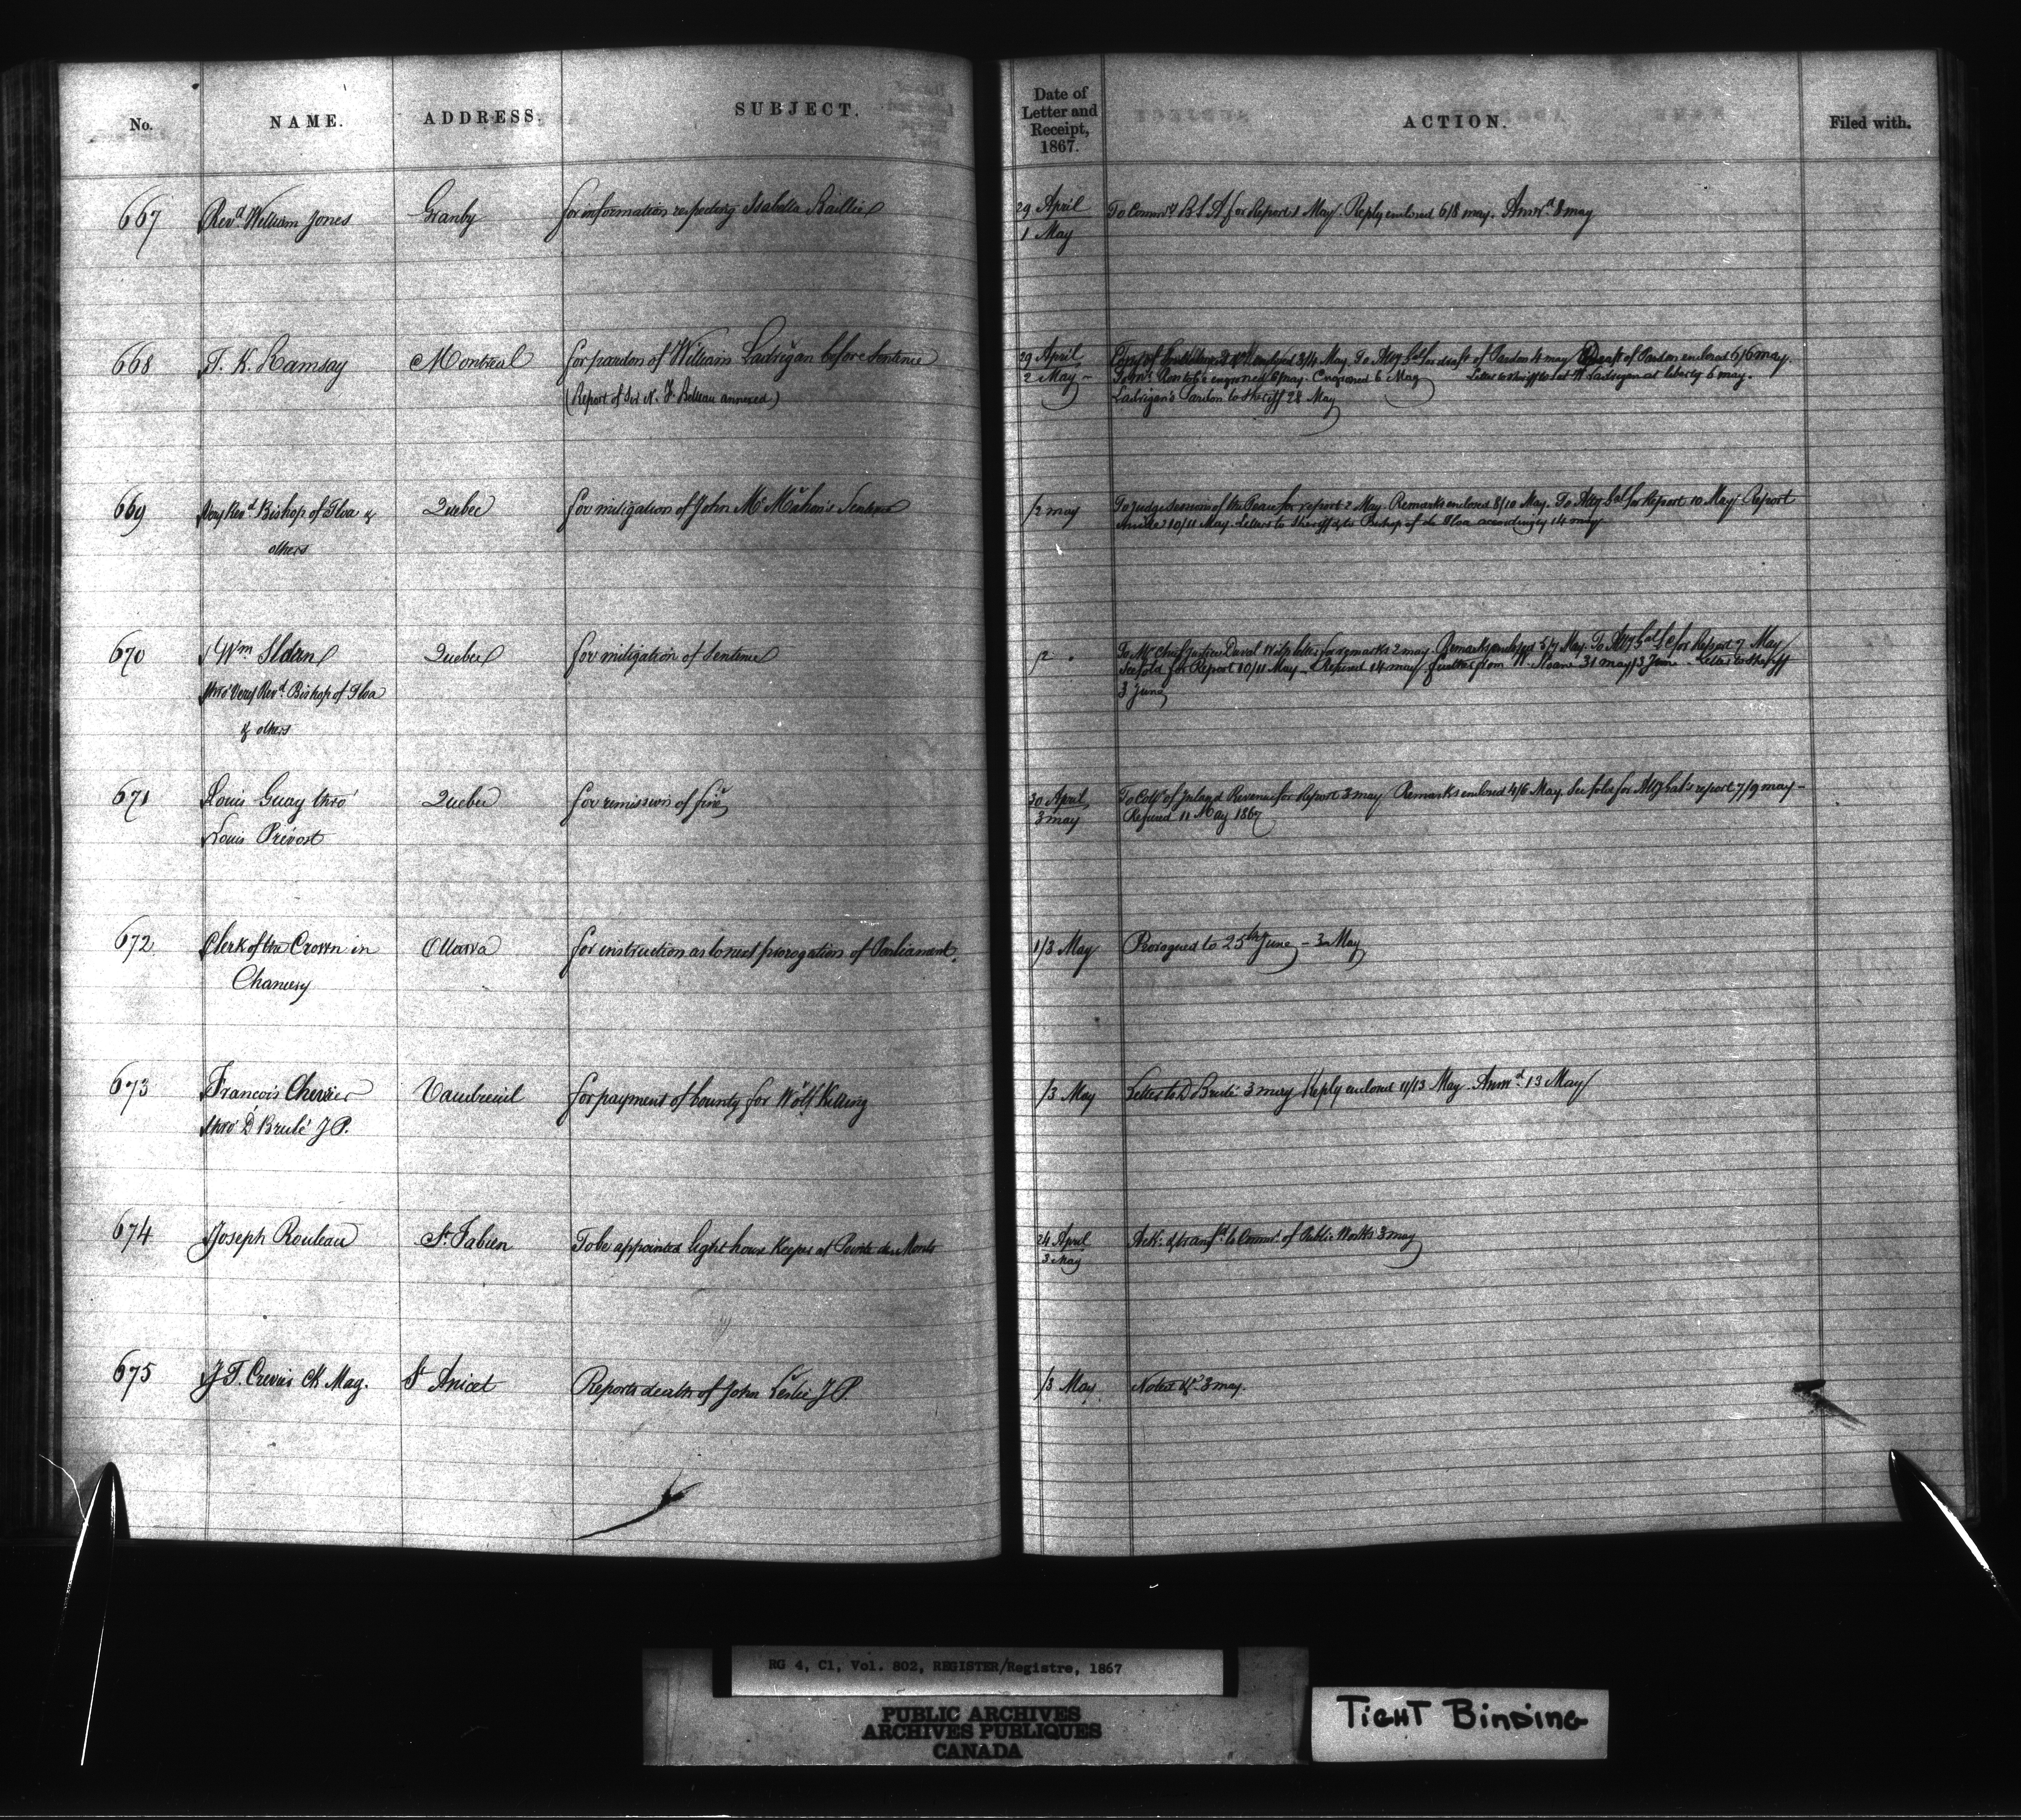 No. NAME. ADDRESS. SUBJECT. Date of Letter and Receipt, 1867. ACTION. Filed with.
667 Revd. William Jones Granby for information respecting Isabella Baillie 29 April To Commr. B L A for Report 1 May. Reply enclosed 6/8 may. Answd. 8 may
1 May
668 T. K. Ramsay Montreal for pardon of William Ladrigan before Sentence 29 April enclosed 3/4 May. To Atty Gal for draft of Pardon 4 may Draft of Pardon enclosed 6/6 may.
2 May to be engrossed 6 may. Engrossed 6 May Letter to Sheriff to let W Ladrigan at liberty 6 may.
(Report of Sir N. F. Belleau annexed) Ladrigan's Pardon to Sheriff 28 May
669 Very Revd. Bishop of Tloa & Quebec for mitigation of John McMahon's Sentence /2 may To Judge Sessions of the Peace for report 2 May. Remarks enclosed 8/10 May. To Atty Gal for Report 10 May. Report
others 10/11 May. Letters to Sheriff & to Bishop of de Tloa accordingly 14 may
670 Wm Quebec for mitigation of Sentence /2 " To Mr Chief Justice Duval for remarks 2 may. Remarks enclosed 5/7 May. To Atty Gal for Report 7 May
thro' Very Revd. Bishop of Tloa See fold for Report 10/11 May. Refused 14 may further from W. Sloane 31 may/3 June Letter to Sheriff
3 June
& others
671 Louis Guay thro' Quebec for remission of fine 30 April To Colr of Inland Revenue for Report 3 may Remarks enclosed 4/6 May. See fold for Atty Gal's report 7/9 may
Louis Prévost 3 may Refused 11 May 1867
672 Clerk of the Crown in Ottawa for instruction as to next prorogation of Parliament. 1/3 May Prorogued to 25th June - 3 May
Chancery
673 Francois Chevrier Vaudreuil for payment of bounty for Wolf Killing /3 May Letter to D Brulé 3 may Reply enclosed 11/13 May. Answd. 13 May
thro' D Brulé J P.
674 Joseph Rouleau St. Fabien To be appointed light house Keeper at Pointe des Monts 24 April Ack. & transfd to Commr. of Public Works 3 may
3 May
675 J T. Crevier Ck Mag. St Anicet Reports death of John Leslie J P. /3 May Noted &c 3 may.
RG 4, C1, Vol. 802, REGISTER/Registre, 1867
PUBLIC ARCHIVES
ARCHIVES PUBLIQUES
CANADA
TIGHT BINDING